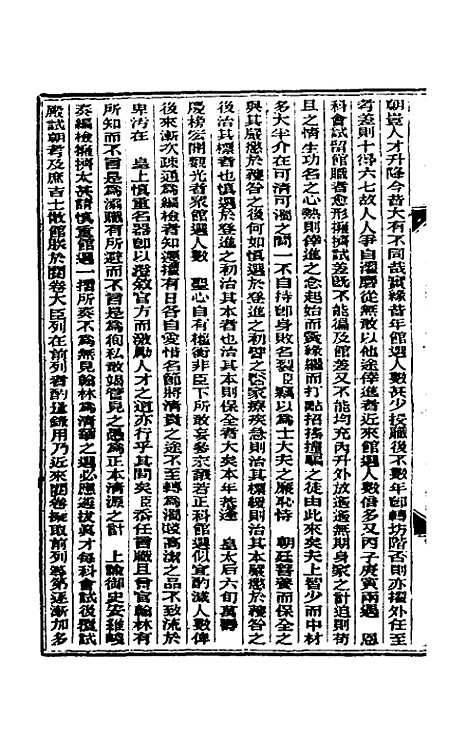 朝衰人才升降今昔大有不同哉實緣昔年館選人數甚少授職後不數年即轉坊階否則亦擢外任至
考差則十得六七故人人爭自濯磨從無敢以他途倖進者近來館選人數倍多又丙子庚寅兩遇 恩
科會試留館職者愈形擁擠試差既不能徧及館差又不能均充內升外放遙遙無期身家之計迫則苟
且之情生功名之心熱則倖進之念起始而夤緣繼而打點招搖撞騙之徒由此來矣夫上智少而中材
多大半介在可清可濁之間一不自持即身敗名裂臣竊以為士大夫之廉恥恃 朝廷督養而保全之
與其嚴懲於獲咎之後何如慎選於登進之初譬之醫家療疾急則治其標緩則治其本嚴懲於獲咎之
後治其標者也慎選於登進之初治其本者也治其本則保全者大矣本年恭逢 皇太后六旬萬壽
慶榜宏開觀光者眾館選人數 聖心自有權衡非臣下所敢妄參末議若正科館選似宜酌減人數俾
後來漸次疏通為編檢者知遷擢有日各自愛惜名節將清貴之途不至轉為濁濊高潔之品不致流於
卑汚在 皇上慎重名器即以澄敘官方而激勵人才之道亦行乎其間矣臣忝任言職且曾官翰林有
所知而不言是為溺職有所避而不言是為徇私敢竭管見之愚為正本清源之計 上諭御史安維峻
奏編檢擁擠太甚請慎重館選一摺所奏不為無見翰林為清華之選必應遴拔真才每科會試後覆試
殿試朝考及庶吉士散館朕於閱卷大臣列在前列者酌量錄用乃近來閱卷擬取前列等第逐漸加多